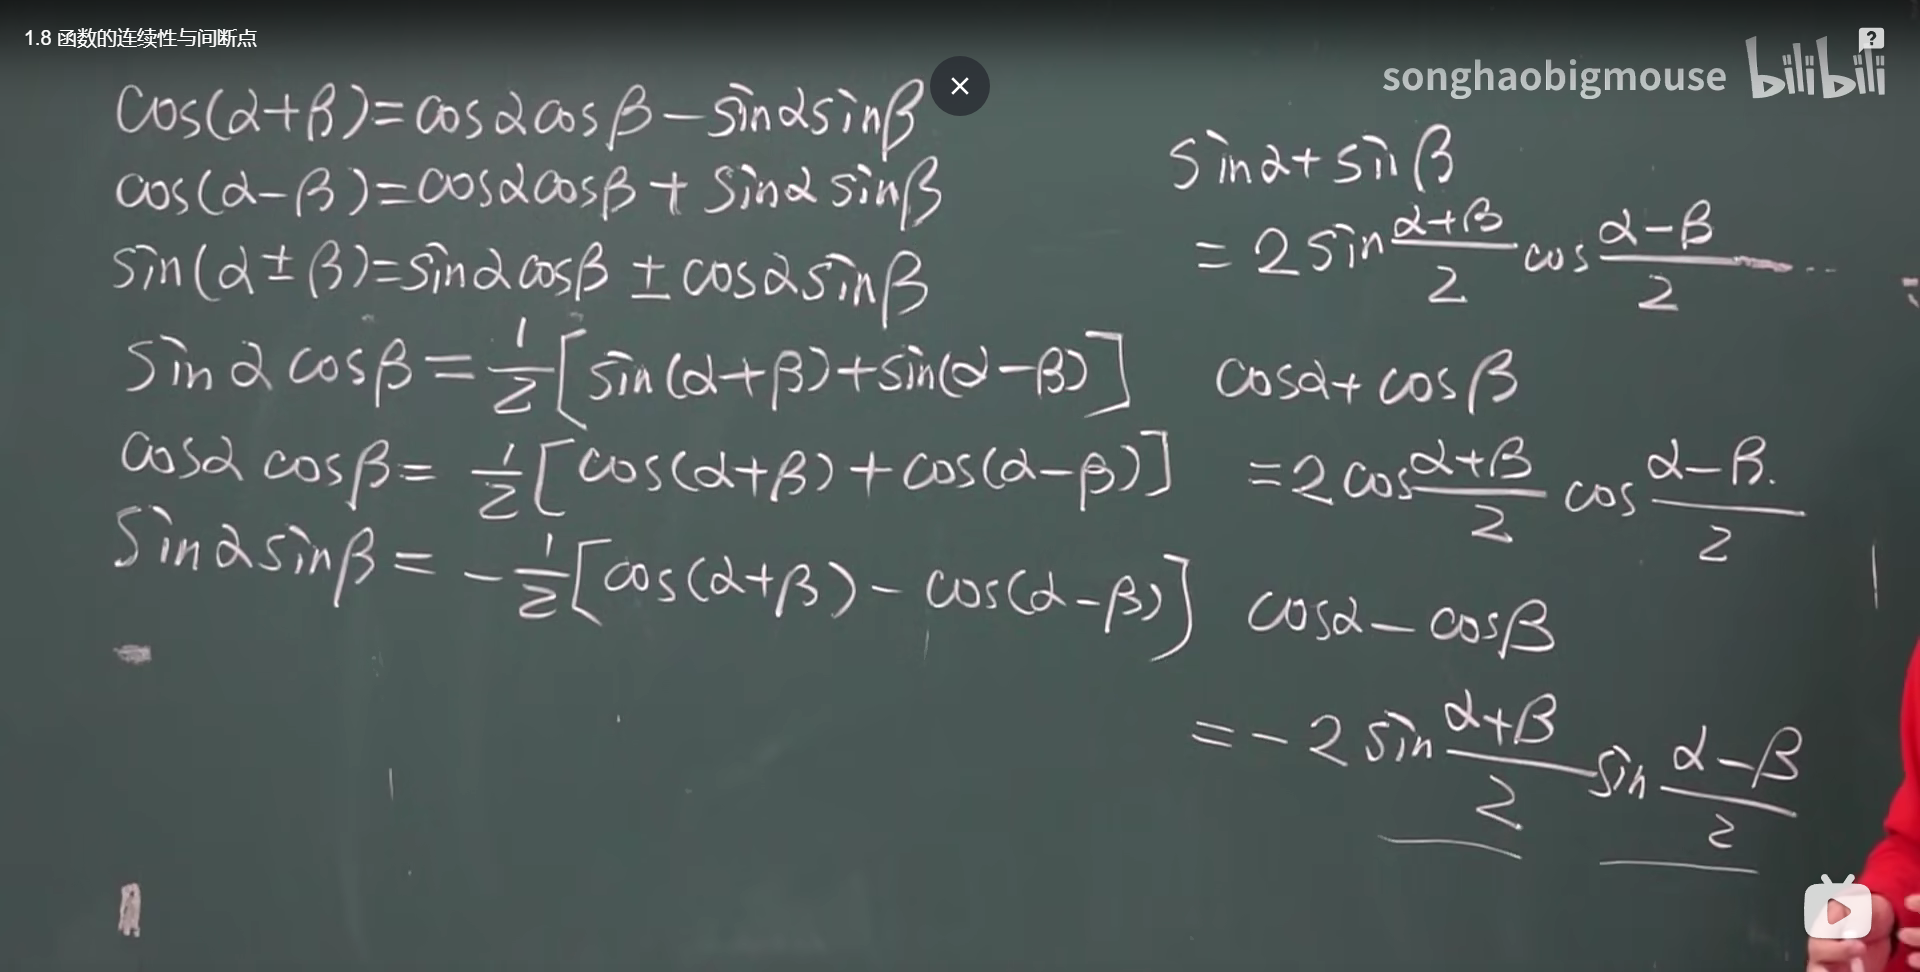 1.8 函数的连续性与间断点
songhaobigmouse bilibili
?
cos(α+β)=cosαcosβ-sinαsinβ
cos(α-β)=cosαcosβ+sinαsinβ
sin(α±β)=sinαcosβ±cosαsinβ
sinαcosβ=1/2[sin(α+β)+sin(α-β)]
cosαcosβ=1/2[cos(α+β)+cos(α-β)]
sinαsinβ=-1/2[cos(α+β)-cos(α-β)]
sinα+sinβ
=2sin(α+β)/2 cos(α-β)/2
cosα+cosβ
=2cos(α+β)/2 cos(α-β)/2
cosα-cosβ
=-2sin(α+β)/2 sin(α-β)/2